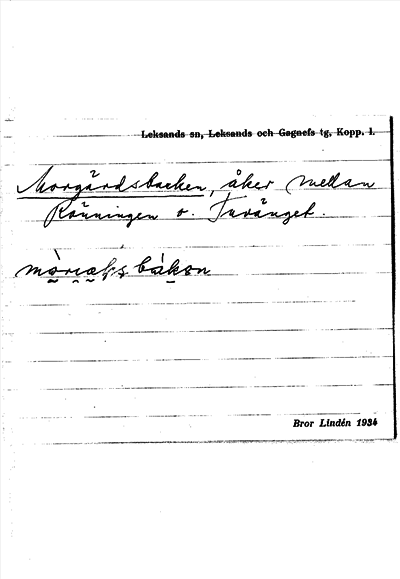 Leksands sn, Leksands och Gagnefs tg, Kopp. l.
Morgårdsbacken, åker mellan
Rönningen o. Turänget.
Bror Lindén 1934